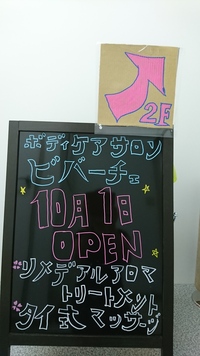 2F
ボディケアサロン
ビバーチェ
10月1日
OPEN
リメデアルアロマ
トリートメント
タイ式マッサージ